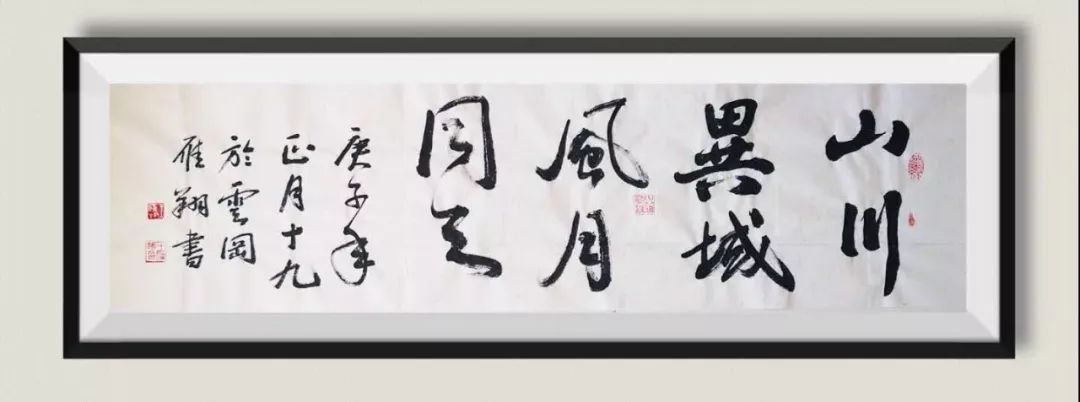 山川
異域
風月
同天
庚子年
正月十九
於雲岡
雁翔書